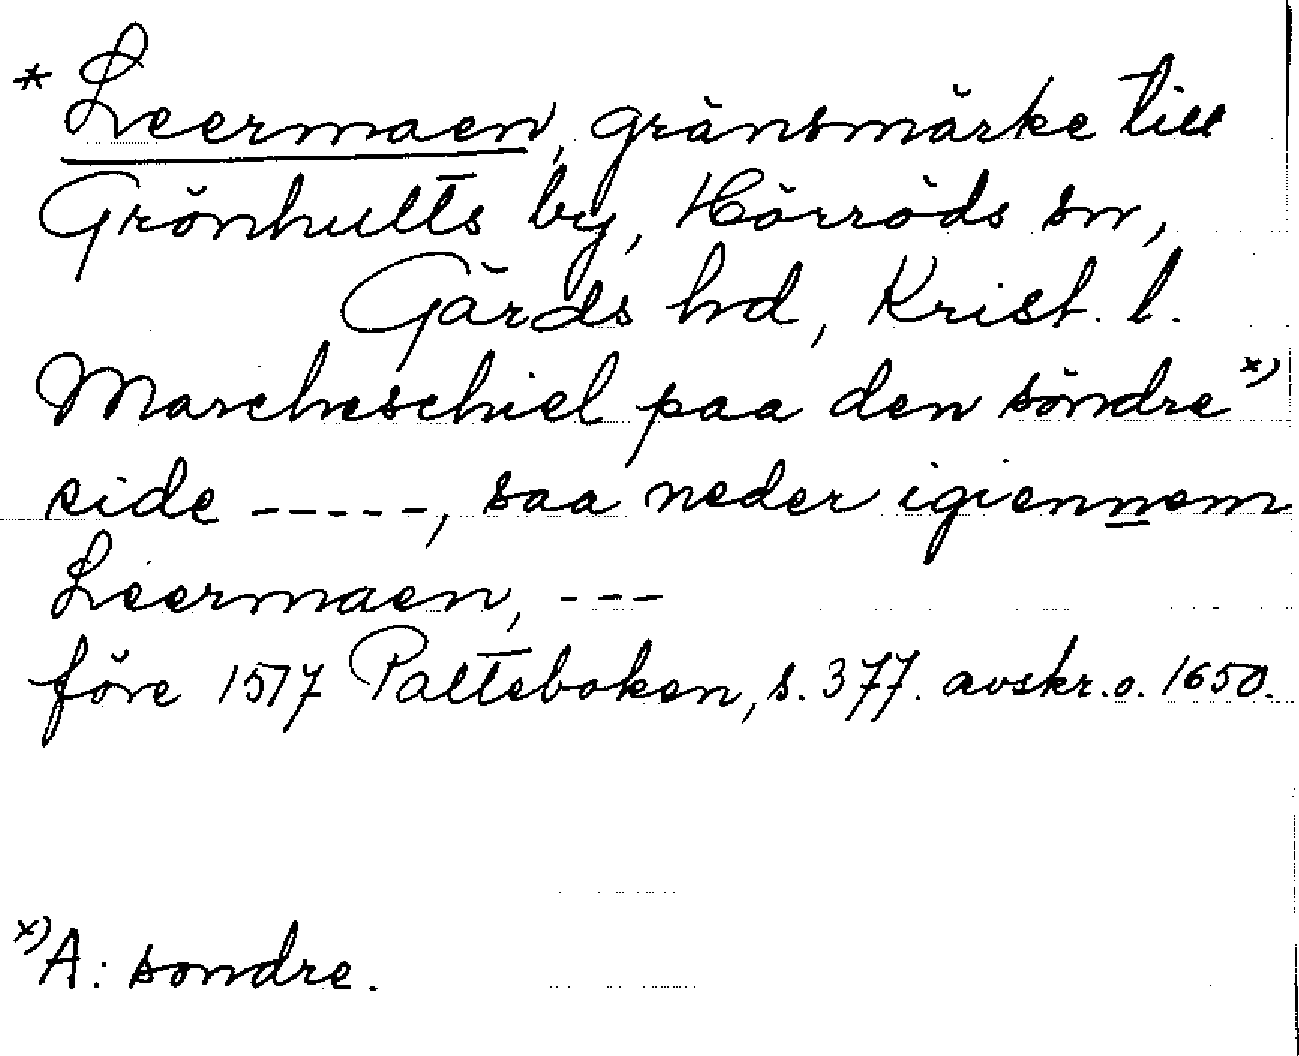 * Leermaen, gränsmärke till
Grönhults by, Hörröds sn,
Gärds hd, Krist. l.
Marcheschiel paa den söndre x)
side -----, saa neder igiennem
Leermaen, ---
före 1517 Palteboken, s. 377. avskr. o. 1650.
x) A: sondre.